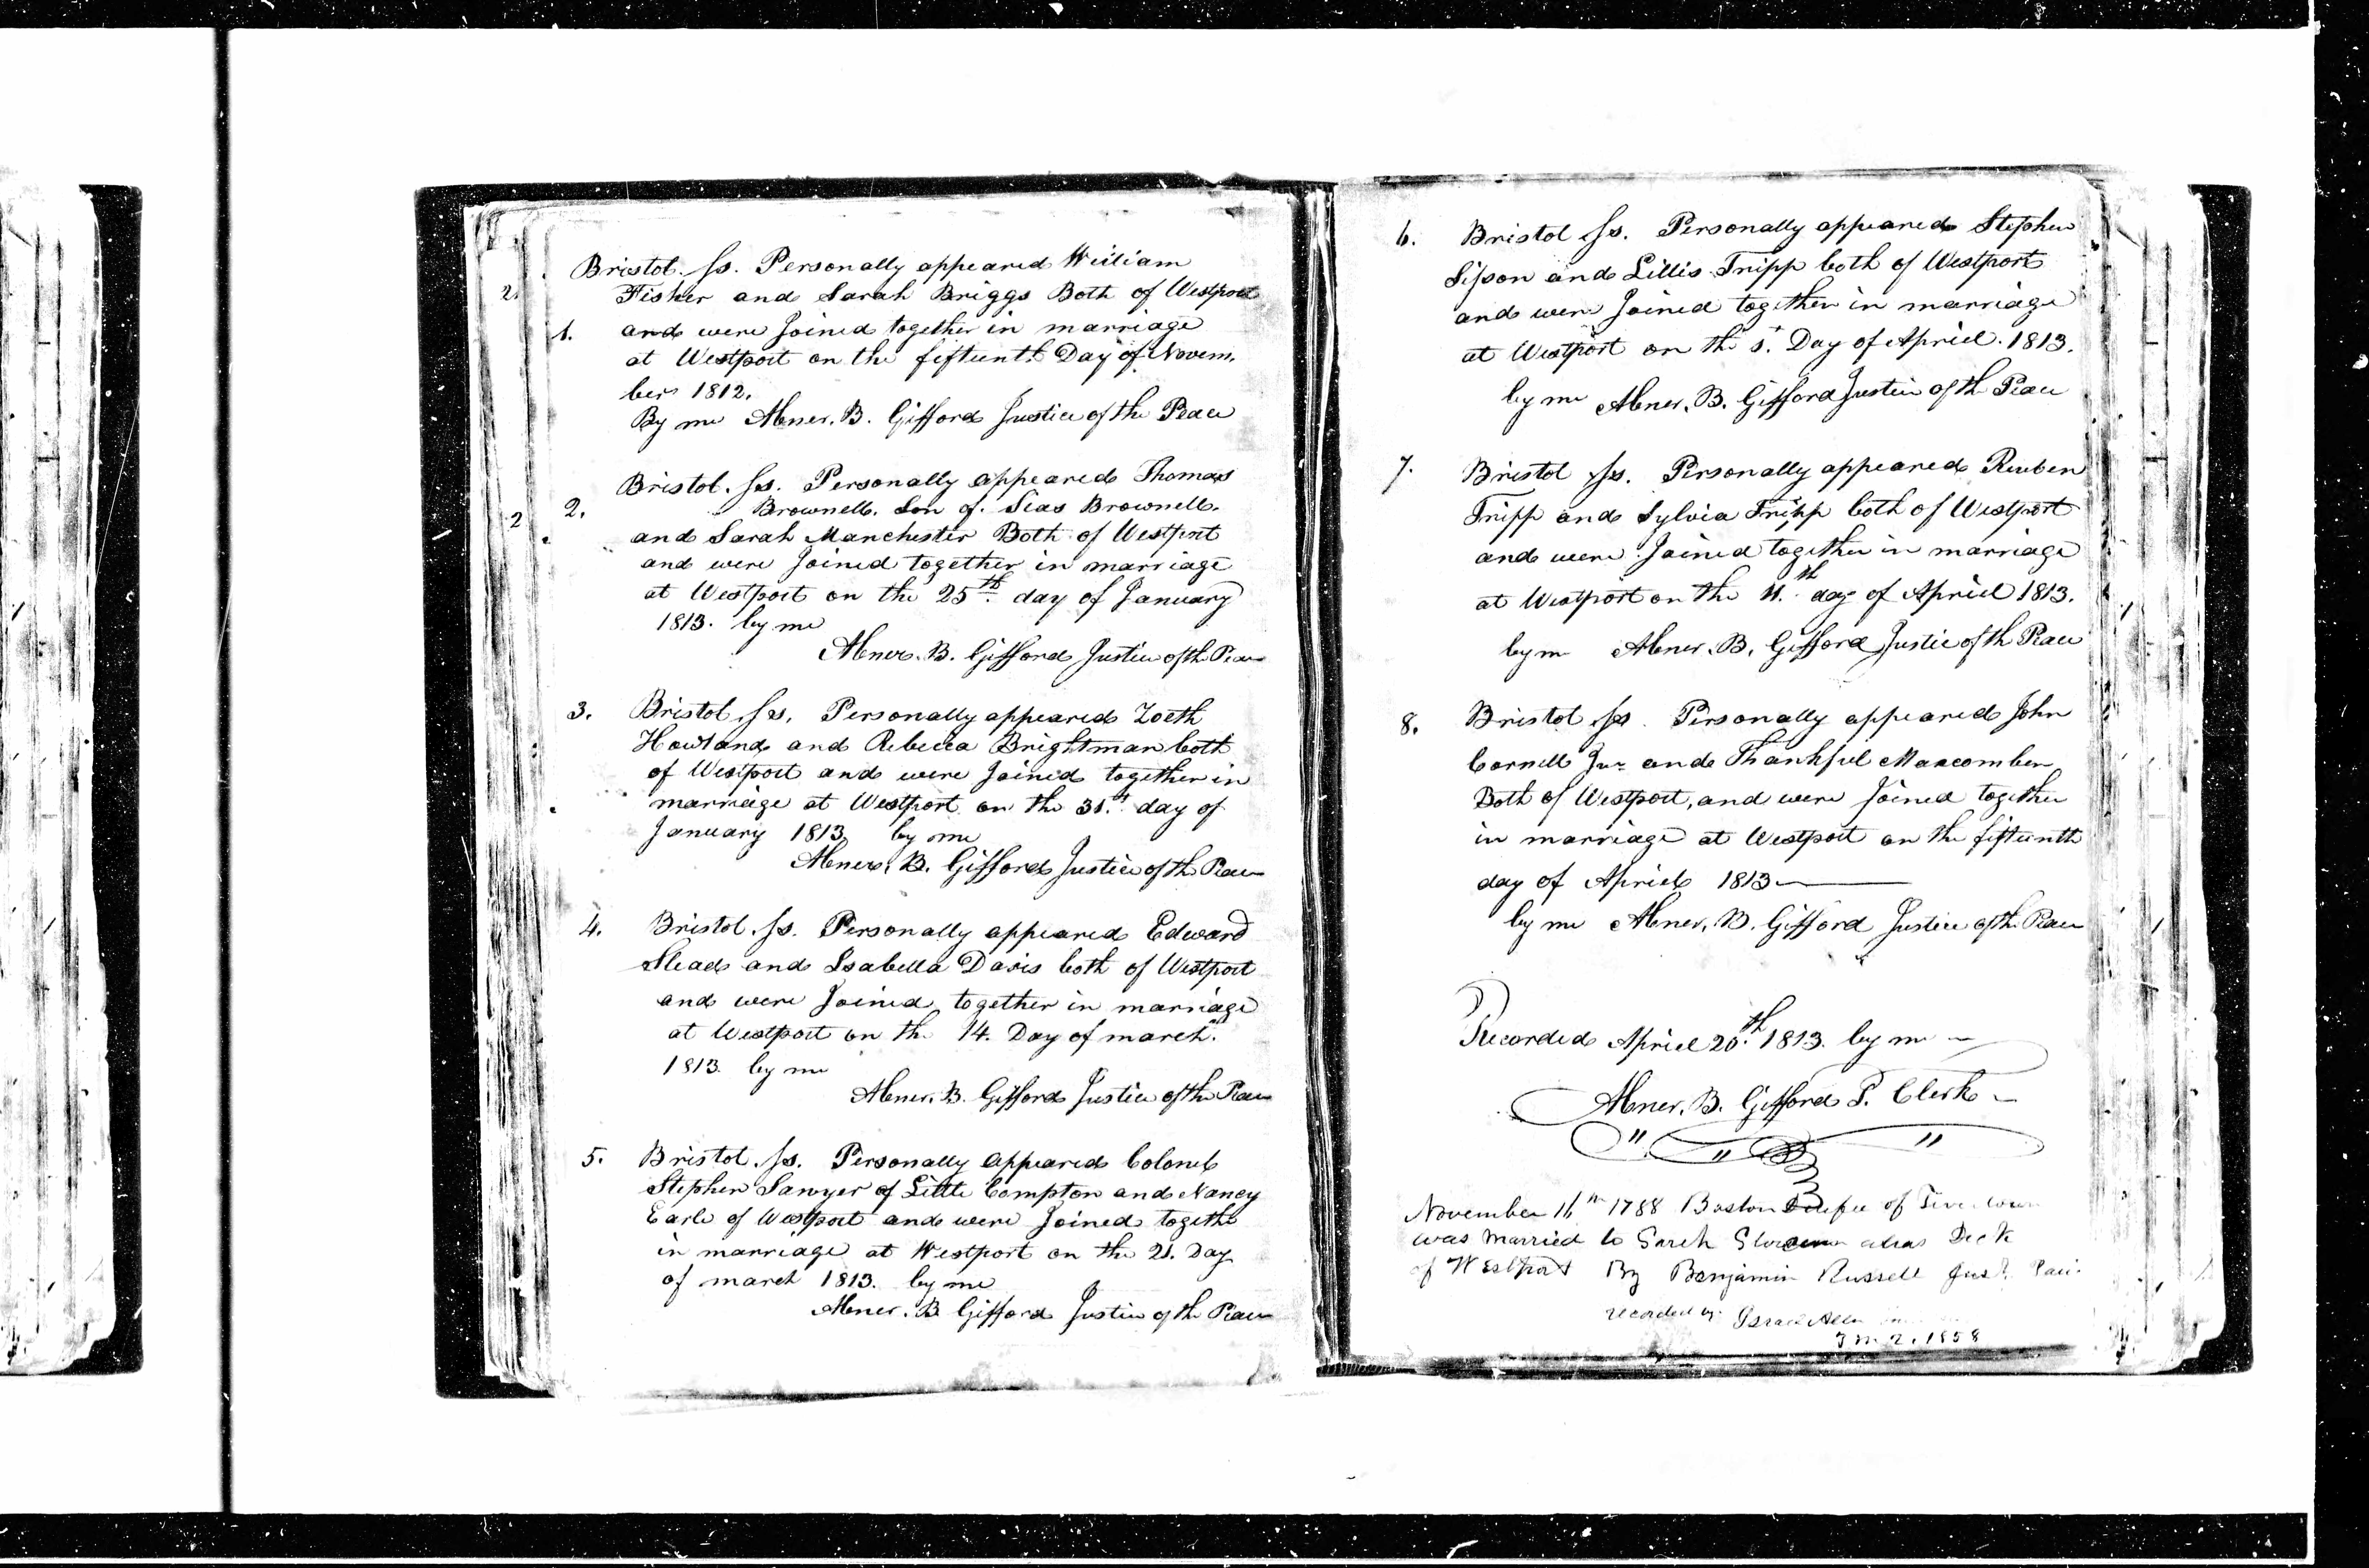 Bristol. ss. Personally appeared William
2.
Fisher and Sarah Briggs Both of Westport
1. and were Joined together in marriage
at Westport on the fifteenth Day of Novem.
ber 1812.
By me Abner. B. Gifford Justice of the Peace
Bristol. ss. Personally appeared Thomas
2 2. Brownell. Son of. Sias Brownell.
and Sarah Manchester Both of Westport
and were Joined together in marriage
at Westport on the 25th. day of January
1813. by me
Abner. B. Gifford Justice of th Peace
3. Bristol ss. Personally appeared Zoeth
Howland and Rebecca Brightman both
of Westport and were Joined together in
marriage at Westport on the 31.st day of
January 1813 by me
Abner. B. Gifford Justice of th Peace
4. Bristol. ss. Personally appeared Edward
Slead and Isabella Davis both of Westport
and were Joined together in marriage
at Westport on th 14. Day of march.
1813. by me
Abner. B. Gifford Justice of the Peace
5. Bristol. ss. Personally appeared Colonel
Stephen Sawyer of Little Compton and Nancy
Earle of Westport and were Joined togethe
in marriage at Westport on the 21. Day
of march 1813. by me
Abner. B Gifford Justice of th Peace
6. Bristol ss. Personally appeared Stephen
Sisson and Lillis Tripp both of Westport
and were Joined together in marriage
at Westport on th Day of Apriel. 1813.
by me Abner. B. Gifford Justice of th Peace
7. Bristol ss. Personally appeared Reuben
Tripp and Sylvia Tripp both of Westport
and were Joined together in marriage
at Westport on the 11.th day of Apriel 1813.
by m Abner. B. Gifford Justice of th Peace
8. Bristol ss. Personally appeared John
Cornell Jur and Thankful Macomber
Both of Westport, and were Joined together
in marriage at Westport on the fifteenth
day of Apriel 1813
by me Abner. B. Gifford Justice of th Peace
Recorded Apriel 20.th 1813. by m
Abner. B. Gifford T. Clerk
November 16th 1788 Boston of
was Married to Sarah Slocum alias
of Westport By Benjamin Russell Just.
recorded by Israel Allen
2. 1858